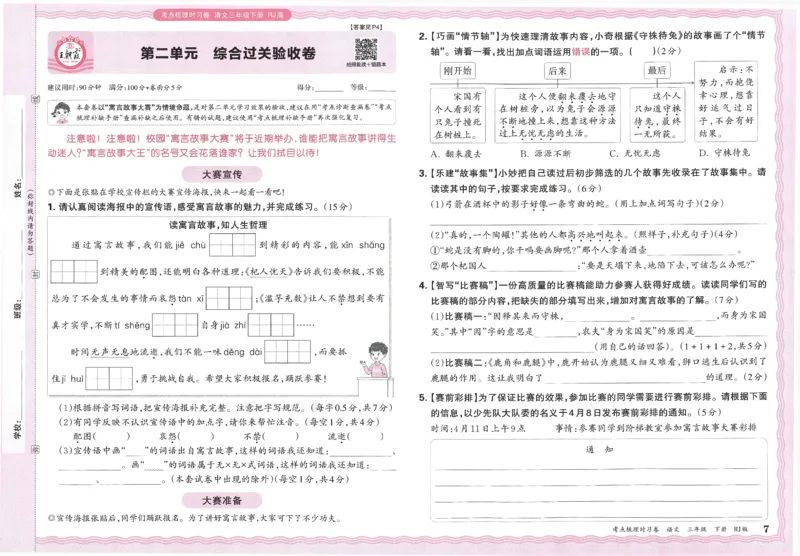 考点梳理时习卷 语文三年级下册 RJ版
王朝霞
第二单元 综合过关验收卷
【答案见P4】
建议用时:90分钟 满分:100分+卷面分5分 得分:______ 等级:______
本套卷以“寓言故事大赛”为情境命题,是对第二单元学习效果的验收,建议在用“考点诊断查漏卷”“考点
梳理补缺手册”查漏补缺之后使用。有错的试题,建议使用“考点梳理补缺手册”再次强化复习。
注意啦!注意啦!校园“寓言故事大赛”将于近期举办,谁能把寓言故事讲得生
动迷人?“寓言故事大王”的名号又会花落谁家?让我们拭目以待!
大赛宣传
◎下面是张贴在学校宣传栏的大赛宣传海报,快来一起看一看吧!
1. 请认真阅读海报中的宣传语,感受寓言故事的魅力,并完成练习。(15分)
读寓言故事,知人生哲理
通过寓言故事,我们能 jiē chù 到精彩的内容,能 xīn shǎng
到精美的配图,还能明白各种道理:《杞人忧天》告诉我们要积极,不能
总为了不会发生的事情而哀怨 tàn xī ;《滥竽充数》让人不禁想到要有
真才实学,不断 tí shēng 自身 jià zhí ……
时间无声无息地流逝,我们不能一味 děng dài ,而要抓
住 jī huì ,勇于挑战自我。希望大家积极报名,踊跃参赛!
(1)根据拼音写词语,把宣传海报补充完整。注意把字写规范。(每字0.5分,共7分)
(2)有同学反映不认识宣传语中的加点字,请你来帮忙注音。(每空1分,共4分)
配图( ) 哀怨( ) 不禁( ) 流逝( )
(3)宣传语中画“____”的词语出自寓言故事,这样的词语我还知道:__________、
__________。画“____”的词语属于无×无×式词语,这样的词语我还知道:
__________、__________。(本套试卷中出现的除外)(每空1分,共4分)
大赛准备
◎宣传海报张贴后,同学们踊跃报名。为了讲好寓言故事,大家可下了不少功夫。
2.【巧画“情节轴”】为快速理清故事内容,小奇根据《守株待兔》的故事画了个“情节
轴”。请看一看,找出加点词语运用错误的一项。( )(2分)
刚开始 后来 最后
宋国有
个人看到有
只兔子撞死
在树桩上。
这个人便翻来覆去地守
在树桩旁,以为兔子会源源
不断地撞上来,想靠这种方法
过上无忧无虑的生活。
这个人
只知道守株
待兔,最终
一无所获。
启示:不
努力,而抱侥
幸心理,想靠
好运气过日
子,不会有好
结果。
A. 翻来覆去 B. 源源不断 C. 无忧无虑 D. 守株待兔
3.【乐建“故事集”】小妙把自己读过后初步筛选的几个故事先收录在了故事集中。请
读读其中的句子,按要求完成练习。(6分)
(1)弓箭在酒杯中的影子好像一条弯曲的蛇。(用上加点词写句子)(2分)
(2)“真的,一个陶罐!”其他的人都高兴地叫起来。(照样子,补充句子)(4分)
①“蛇是没有脚的,你干吗要画脚呢?”那个人拿着酒壶__________。
②那个杞国人__________:“要是天塌下来,地陷下去,可该怎么办呢?”
4.【智写“比赛稿”】一份高质量的比赛稿能助力参赛人获得好成绩。读读同学们写的
比赛稿的部分内容,把缺失的部分填写出来,增加对寓言故事的了解。(7分)
(1)比赛稿一:“因释其耒而守株,__________。__________,而身为宋国
笑。”其中“因”字的意思是__________,农夫“身为宋国笑”的原因是__________
__________(用自己的话回答)。(1+1+1+2,共5分)
(2)比赛稿二:《鹿角和鹿腿》中,鹿开始认为鹿腿又细又难看,狮口逃生后认识到了
鹿腿的作用。这让我明白了__________的道理。(2分)
5.【赛前彩排】为了保证比赛的效果,参加比赛的同学需要进行赛前彩排。请根据下面
的信息,以少先队大队委的名义于4月8日发布赛前彩排的通知。(5分)
时间:4月11日上午9点 事情:参赛同学到阶梯教室参加寓言故事大赛彩排
通 知
考点梳理时习卷 语文 三年级 下册 RJ版 7
学校:
班级:
姓名:
(弥封线内请勿答题)